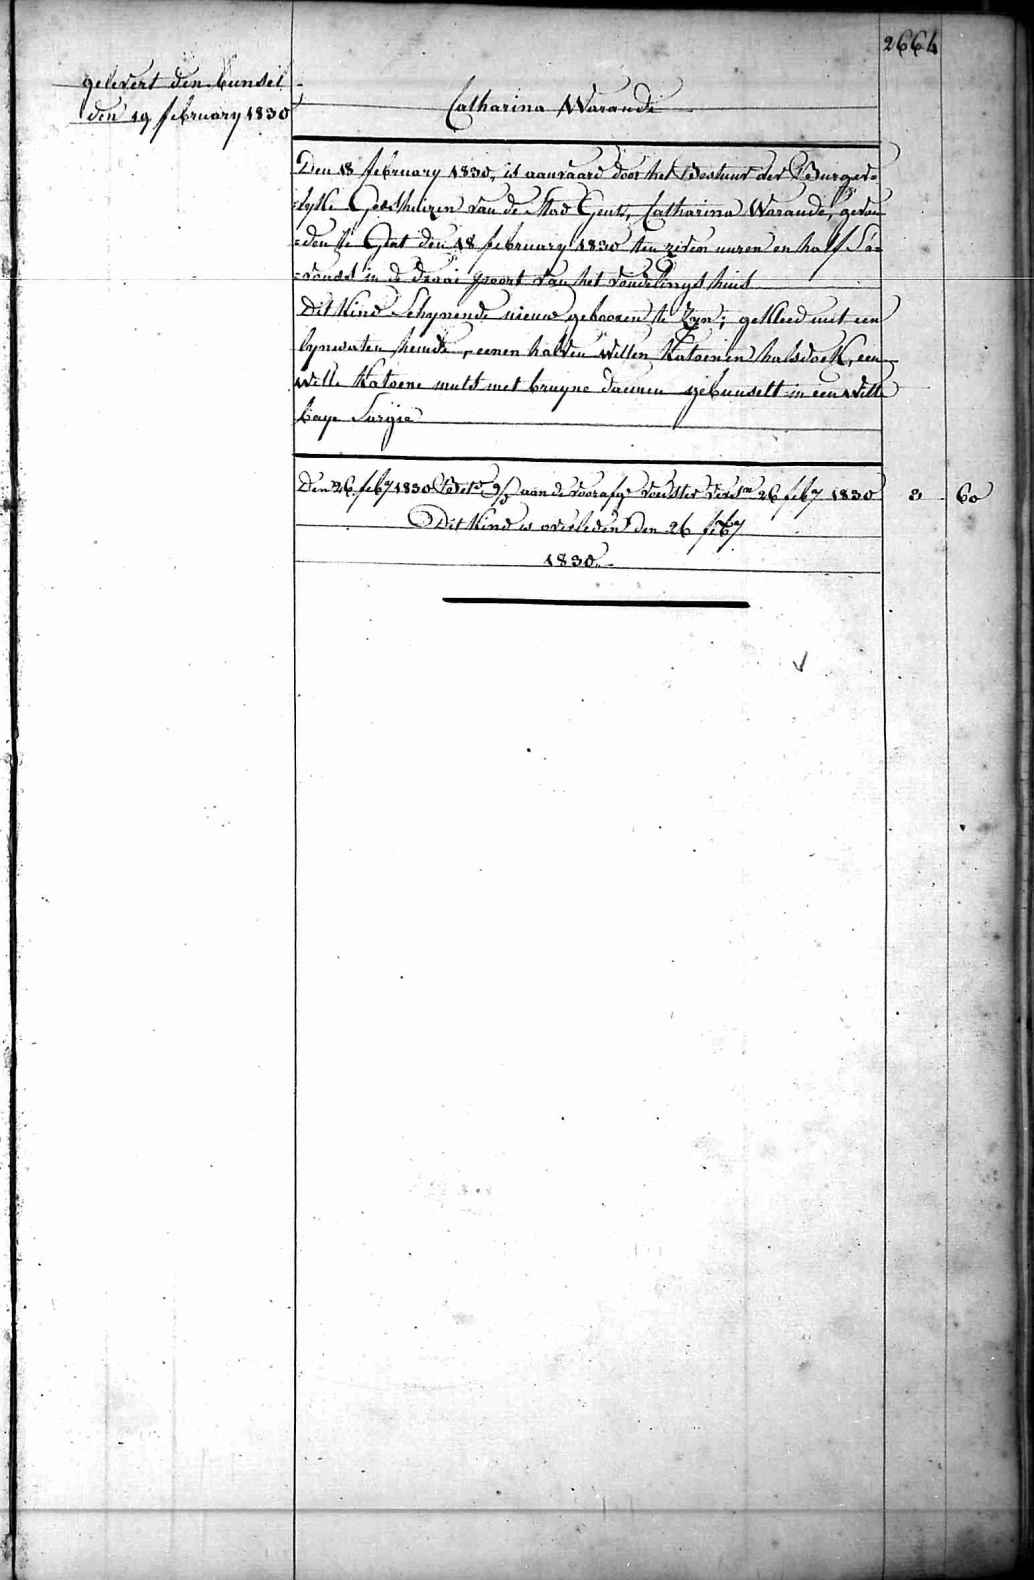 2664
gelevert den bunsel
den 19 february 1830
Catharina Warande
Den 18 february 1830, is aanvaard door het Bestuur der Burger=
=lyke Godshuizen van de stad Gent, Catharina Warande, gevon
=den te Gent den 18 february 1830 ten zeven uuren en half s'a=
=vonds in de draai poort van het vondelings huis
Dit kind schynende nieuw gebooren te zyn; gekleed met een
lynwaeten hemde, eenen halven witten katoenen halsdoek, een
witte katoene muts met bruyne gebunselt in een witte
baye sargie
Den 26 feby 1830 aan de voorafg. voedster 26 feby 1830 3 60
Dit kind is overleden den 26 feby
1830.